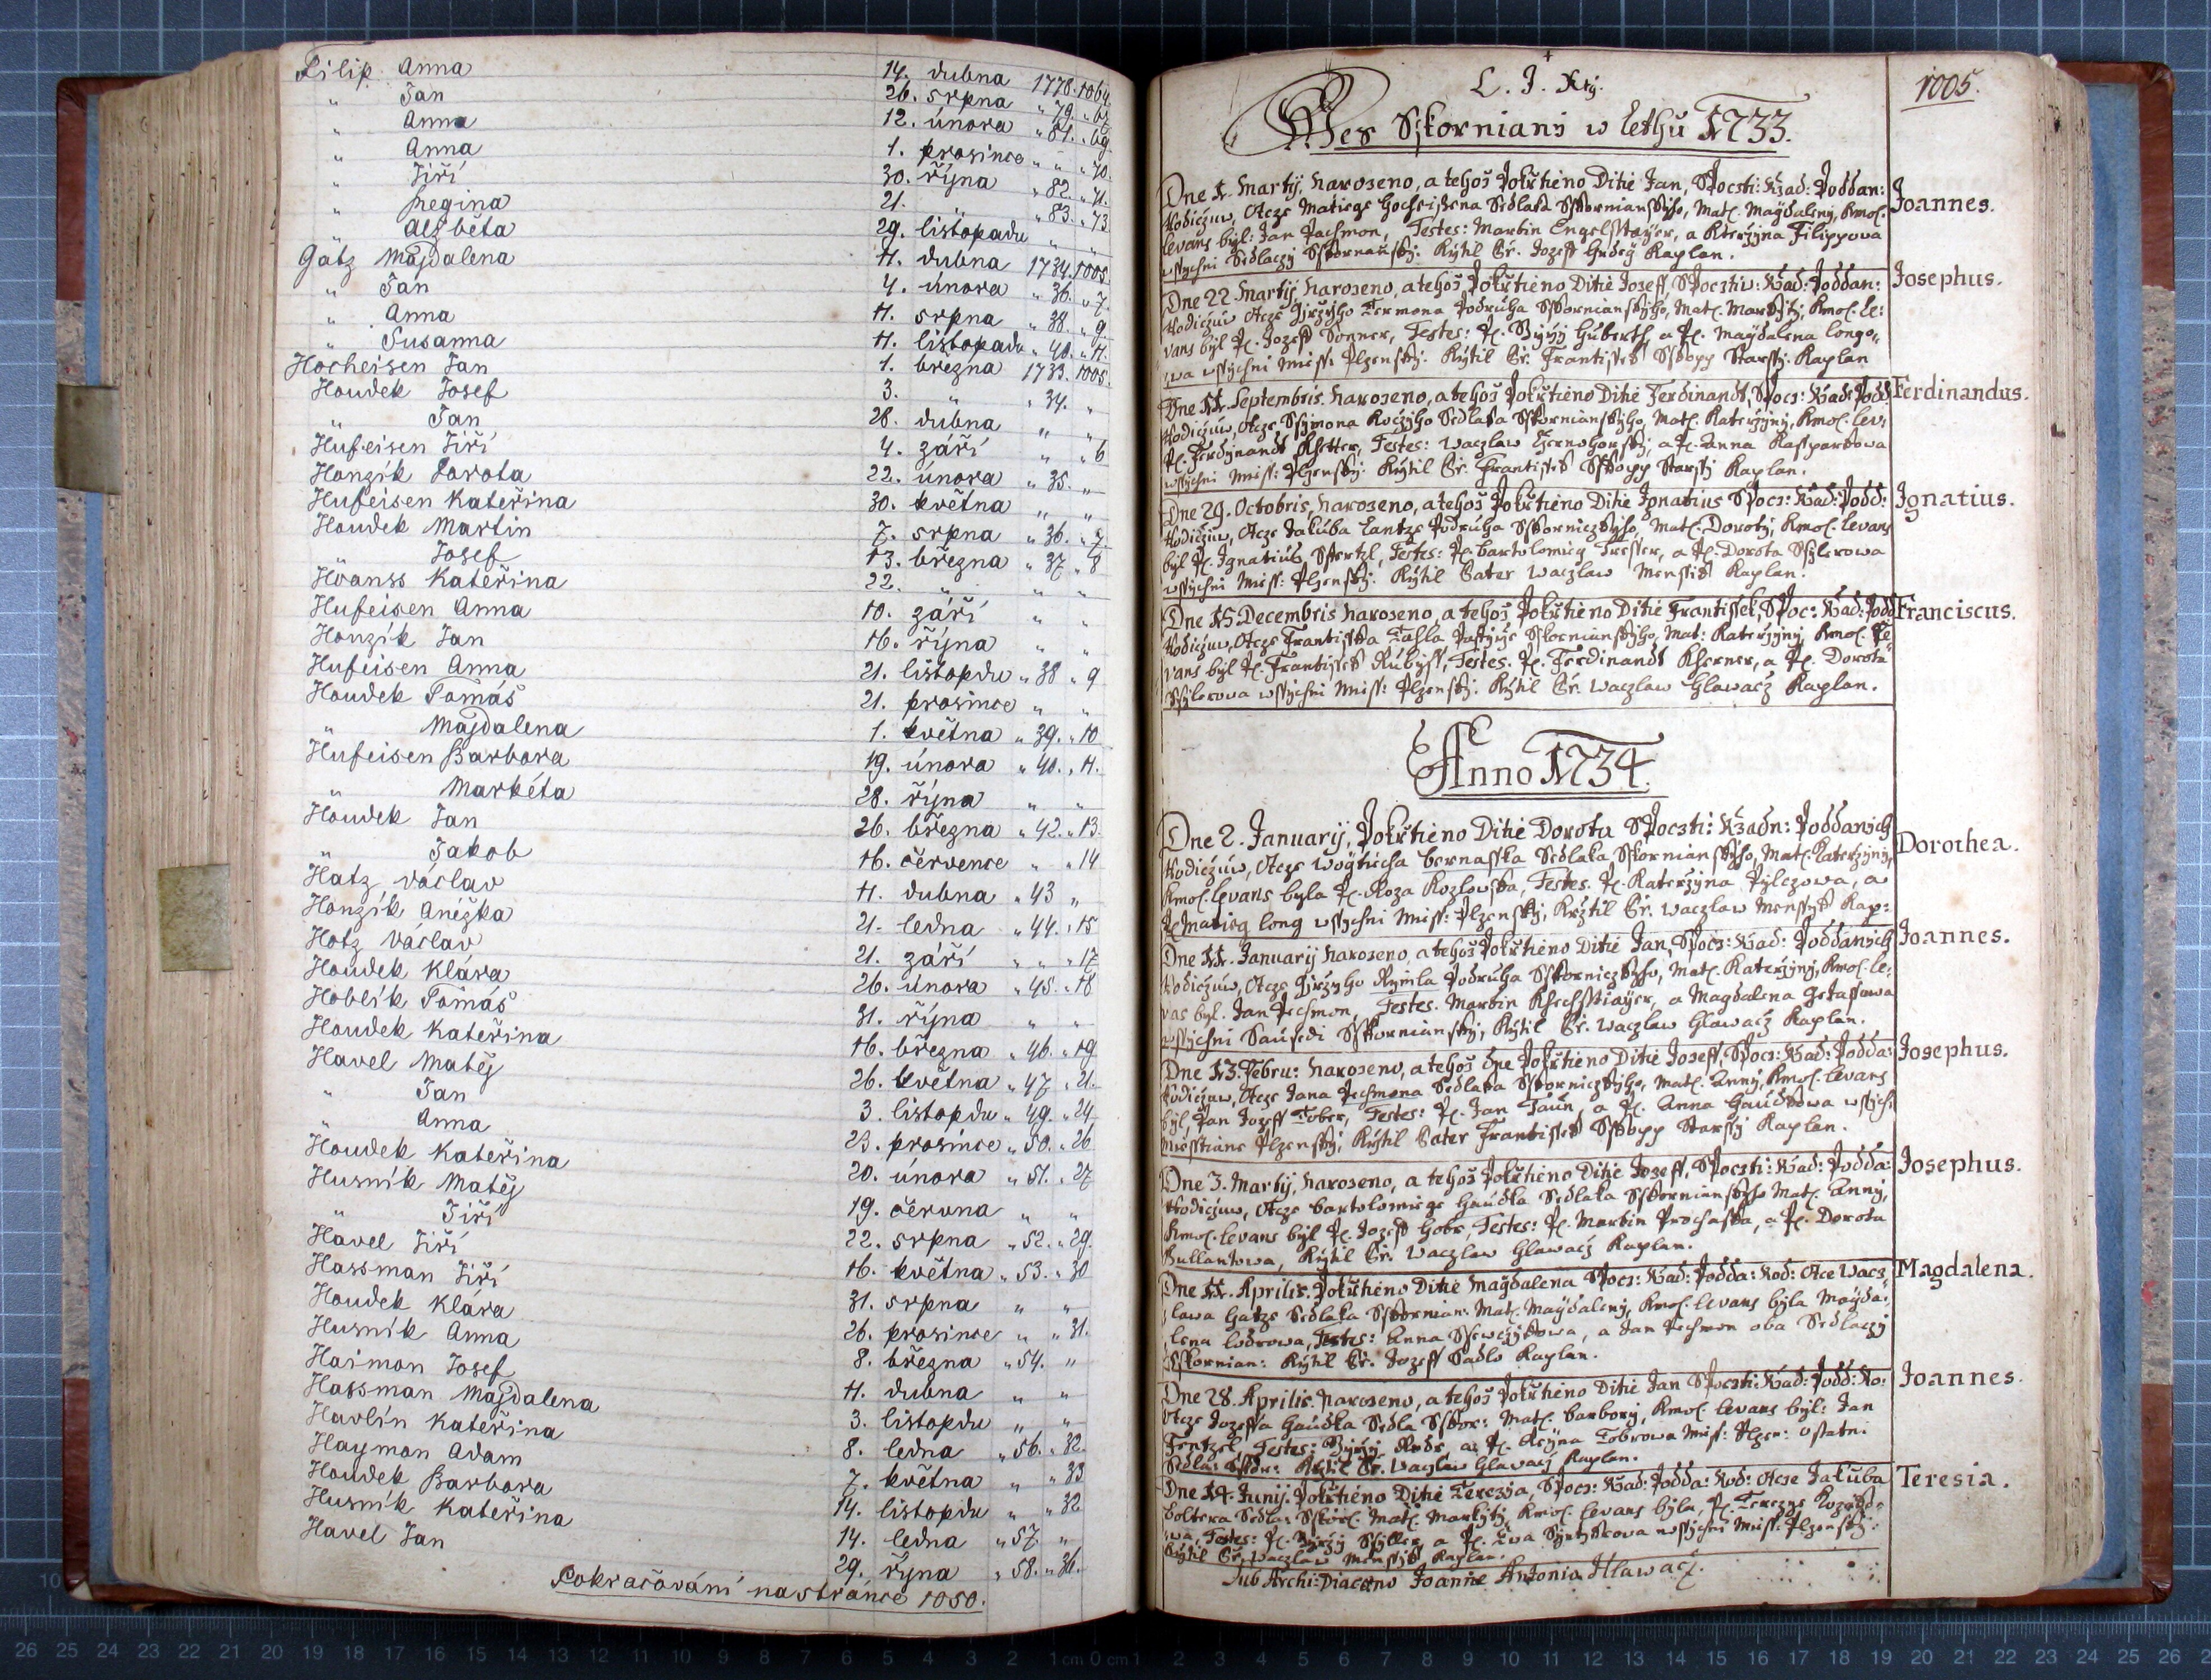 Filip Anna 14. dubna 1778. 1064
" Jan 26. srpna " 79. " 67
" Anna 12. února " 81. " 69
" Anna 1. prosince " " " 70.
" Jiří 30. října " 82. " 71.
" Regina 21. " " 83. " 73
" Alžběta 29. listopadu " "
Gätz Majdalena 11. dubna 1734. 1005.
" Jan 4. února " 36. " 7
" Anna 11. srpna " 38. " 9
" Susanna 11. listopadu " 40. " 11.
Hocheisen Jan 1. března 1733. 1005.
Houdek Josef 3. " " 34. "
" Jan 28. dubna " "
Hufeisen Jiří 4. září " " 6
Honzík Dorota 22. února " 35. "
Hufeisen Kateřina 30. května " "
Houdek Martin 7. srpna " 36. " 7
" Josef 13. března " 37 " 8
Hvanss Kateřina 22. " " "
Hufeisen Anna 10. září " "
Honzík Jan 16. října " "
Hufeisen Anna 21. listopdu " 38 " 9
Houdek Tomáš 21. prosince " "
" Majdalena 1. května " 39. " 10
Hufeisen Barbora 19. února " 40. " 11.
" Markéta 28. října " "
Houdek Jan 26. března " 42. " 13.
" Jakob 16. července " " 14
Hatz Václav 11. dubna " 43 "
Honzík Anežka 21. ledna " 44. " 15
Hotz Václav 21. září " " " 17
Houdek Klára 26. února " 45. " 18
Hoblík Tomáš 31. října " "
Houdek Kateřina 16. března " 46. " 19
Havel Matěj 26. května " 47 " 21.
" Jan 3. listopdu " 49. " 24
" Anna 23. prosince " 50. " 26
Houdek Kateřina 20. února " 51. " 27
Husník Matěj 19. června " "
" Jiří 22. srpna " 52. " 29.
Havel Jiří 16. května " 53. " 30
Hassman Jiří 31. srpna " "
Houdek Klára 26. prosince " " 31.
Husník Anna 8. března " 54. "
Haiman Josef 11. dubna " "
Hassman Majdalena 3. listopdu " "
Havlín Kateřina 8. ledna " 56. " 32.
Hayman Adam 7. května " " 33
Houdek Barbora 14. listopdu " " 32
Husník Kateřina 14. ledna " 57. "
Havel Jan 29. října " 58. " 36.
Pokračování na stránce 1050.
L. J. Xtg.
1005.
Wes Sskornianj w lethu 1733.
Dne 1. Martij. narozeno, a tehož Pokřtieno Ditie Jan, Spoczti: Kžad: Poddan:
Joannes.
Rodiczuw, Otcze Matiege Hocheisena Sedlaka Sskornianskyho, Mat. Maydaleny, Kmo.
levans byl: Jan Pachmon, Testes: Martin Engelstayer, a Kterzyna Filippova
wssychni Sedlaczy Sskornansky. Krztil Pr. Jozeff Hudeg Kaplan.
Dne 22 Martij, narozeno, a tehož Pokřtieno Ditie Jozeff, Spocztiw: Kžad: Poddan:
Josephus.
Rodiczuw Otcze Girzyho Termona Podruha Sskornianskyho, Mat. Markyty, Kmo. le:
vans byl P. Jozeff Sonner, Testes: P. Girzy Huberth, a P. Maydalena Longo„
wa wssychni Miss. Plzensky. Krztil Pr. Frantissek Sskopp Starssy Kaplan
Dne 11. Septembris. narozeno, a tehož Pokřtieno Ditie Ferdinandt, Spocz: Kžad: Podd
Ferdinandus.
Rodiczuw, Otcze Ssymona Koczyho Sedlaka Sskornianskyho, Mat. Katerzyny, Kmo. lev:
P. Ferdynandt Khetter, Testes: Waczlaw Czernohorsky, a P. Anna Kassparkowa
wssychni Miss: Plzensky. Krztil Pr. Frantissek Sskopp Starssy Kaplan.
Dne 29. Octobris, narozeno, a tehož Pokřtieno Ditie Ignatius Spocz: Kžad: Podd:
Ignatius.
Rodiczuw, Otcze Jakuba Lantze Podruha Sskorniczkyho, Mat. Doroty, Kmo. levans
byl P. Ignatius Sstertzl, Testes: P. Bartolomieg Tresser, a P. Dorota Ssylerowa
wssychni Miss: Plzensky. Krztil Pater Waczlaw Menssik Kaplan.
Dne 15. Decembris narozeno, a tehož Pokřtieno Ditie Frantissek, Spoc: Kžad: Podd
Franciscus.
Rodiczuw, Otcze Frantisska Tahla Pastyrze Skornianskyho, Mat: Katerzyny, Kmo. le
vans byl P. Frantissek Rubyss, Testes. P. Ferdinandt Kherner, a P. Dorota
Ssylerowa wssychni Miss: Plzensky. Krztil Pr. Waczlaw Hlawacz Kaplan.
Anno 1734.
Dne 2. Januarij, Pokřtieno Ditie Dorota Spoczti: Kžadn: Poddanych
Dorothea.
Rodiczuw, Otcze Woytiecha Bernasska Sedlaka Skornianskyho, Mat. Katerzyny,
Kmo. levans byla P. Roza Kozlowska, Testes. P. Katerzyna Pylczowa, a
P. Matieg Long wssychni Miss: Plzensky, Krztil Pr. Waczlaw Menssyk Kap:
Dne 11. Januarij narozeno, a tehož Pokřtieno Ditie Jan, Spocz: Kžad: Poddanych
Joannes.
Rodiczuw, Otcze Girzyho Kymla Podruha Sskorniczkyho, Mat. Katerzyny, Kmo. le:
vas byl. Jan Pechmon, Testes. Martin Khechstiayer, a Magdalena
wssychni Sausedi Sskorniansky, Krztil Pr. Waczlaw Hlawacz Kaplan.
Dne 13. Febru: narozeno, a tehož dne Pokřtieno Ditie Jozeff, Spocz: Kžad: Podda:
Josephus.
Rodiczuw, Otcze Jana Pechmona Sedlaka Sskorniczkyho, Mat. Anny, Kmo. levans
byl, Pan Jozeff Tober, Testes: P. Jan Taun, a P. Anna Haudkowa wssych:
Miesstiane Plzensky, Krztil Pater Frantissek Sskopp Starssy Kaplan.
Dne 3. Martij, narozeno, a tehož Pokřtieno Ditie Jozeff, Spoczti: Kžad: Podda:
Josephus.
Rodiczuw, Otcze Bartolomiege Haudka Sedlaka Sskornianskyho Mat. Anny,
Kmo. levans byl P. Jozeff Gobs, Testes: P. Martin Prochaska, a P. Dorota
Bullantowa, Krztil Pr. Waczlaw Hlawacz Kaplan.
Dne 11. Aprilis. Pokřtieno Ditie Magdalena Spocz: Kžad: Podda: Rod: Otce Wacz
Magdalena.
lawa Gatze Sedlaka Sskornian: Mat. Maydaleny, Kmo. levans byla Mayda:
lena Lodrowa, Testes: Anna Ssewczykowa, a Jan Pechmon oba Sedlaczy
Sskornian: Krztil Pr. Jozeff Sadlo Kaplan.
Dne 28. Aprilis. narozeno, a tehož Pokřtieno Ditie Jan Spoczti: Kžad: Podd: Ro:
Joannes.
Otcze Jozeffa Haudka Sedla Sskor: Mat. Barbory, Kmo. levans byl: Jan
Fentzel, Testes: Girzy a P. Reyna Tobrowa Miss: Plzen: ostatni
Sedla: Sskor: Krztil Pr. Waczlaw Hlawacz Kaplan.
Dne 14. Junij. Pokřtieno Ditie Terezya, Spocz: Kžad: Podda: Rod: Otcze Jakuba
Teresia.
Soltera Sedla: Sskor. Mat. Markyty, Kmo. levans byla, P. Terezye
wa, Testes: P. Girzy Ssyller, a P. Eva wssychni Miss. Plzensky.
Krztil Pr. Waczlaw Menssyk Kaplan.
Sub Archi: Diacono Joanne Antonio Hlawacz.
10
26 25 24 23 22 21 20 19 18 17 16 15 14 13 12 11 10 9 8 7 6 5 4 3 2 1 cm 0 cm 1 2 3 4 5 6 7 8 9 10 11 12 13 14 15 16 17 18 19 20 21 22 23 24 25 26